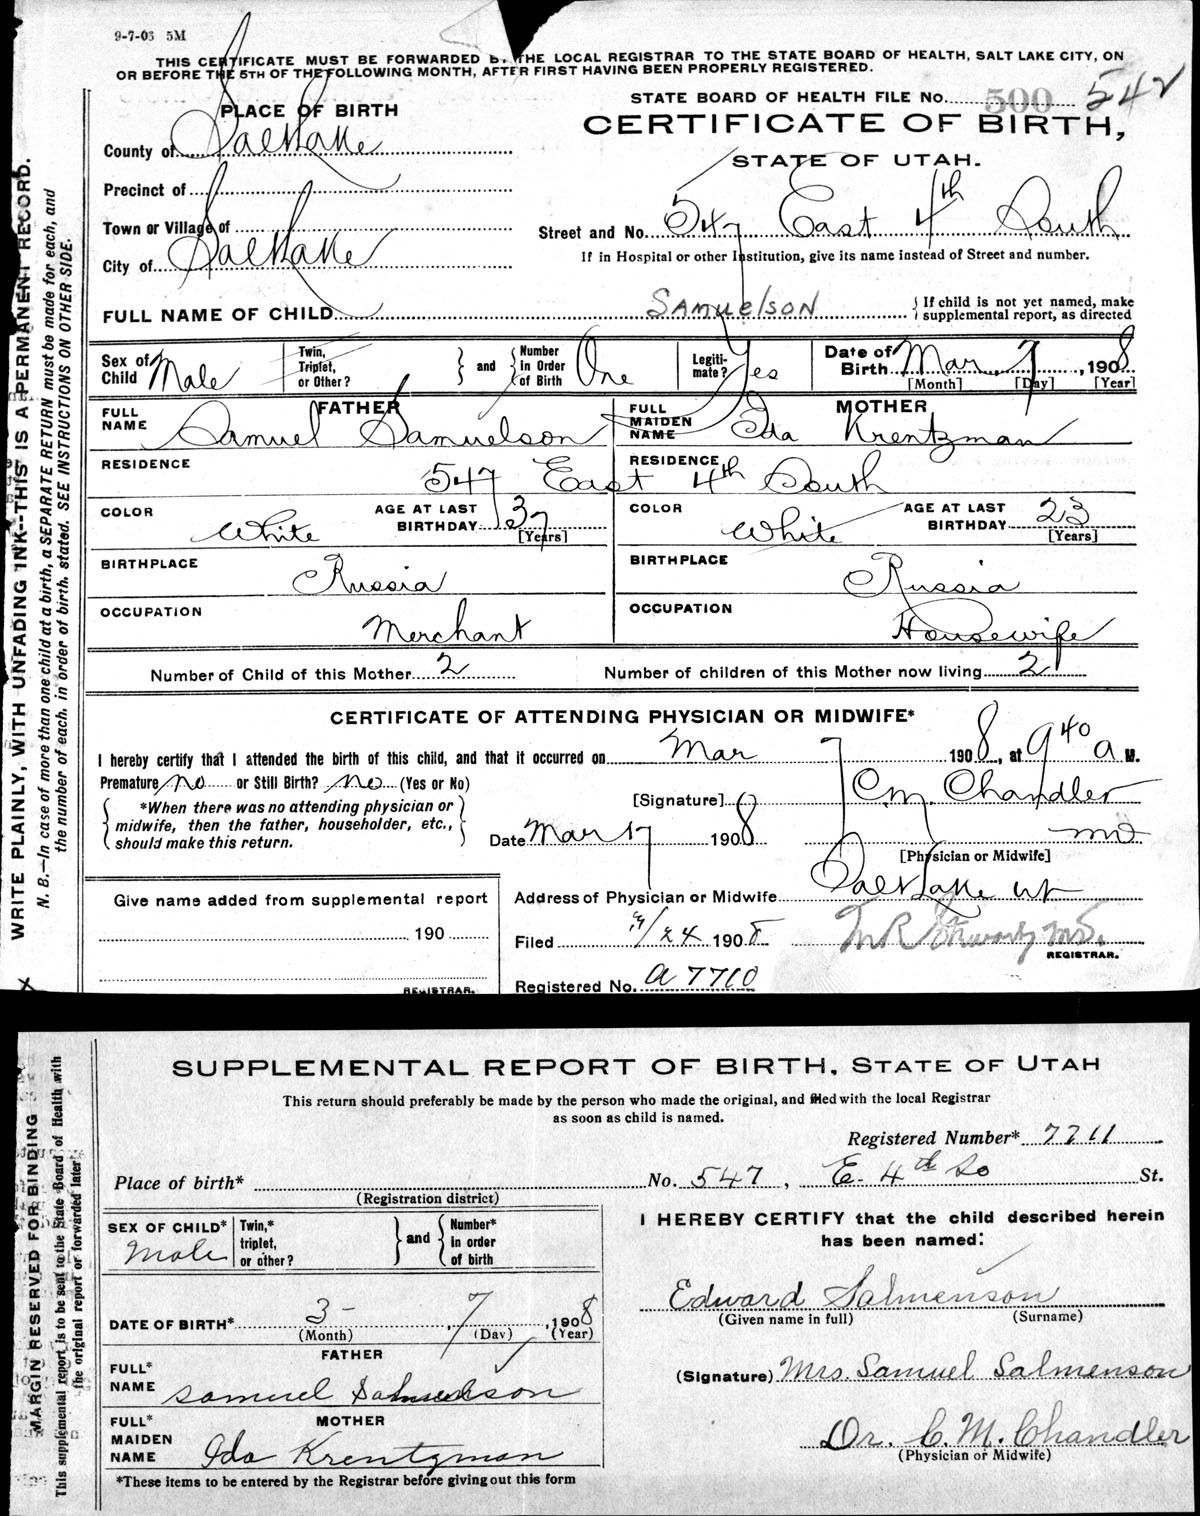 9-7-03 5M
THIS CERTIFICATE MUST BE FORWARDED B. THE LOCAL REGISTRAR TO THE STATE BOARD OF HEALTH, SALT LAKE CITY, ON
OR BEFORE THE 5TH OF THE FOLLOWING MONTH, AFTER FIRST HAVING BEEN PROPERLY REGISTERED.
STATE BOARD OF HEALTH FILE No. 500 542
PLACE OF BIRTH
CERTIFICATE OF BIRTH,
STATE OF UTAH.
County of Salt Lake
Precinct of
Town or Village of
City of Salt Lake
Street and No. 547 East 4th South
If in Hospital or other Institution, give its name instead of Street and number.
FULL NAME OF CHILD Samuelson
If child is not yet named, make
supplemental report, as directed
Sex of Child Male
Twin, Triplet, or Other?
and
Number in Order of Birth One
Legitimate? Yes
Date of Birth Mar 7, 1908
[Month] [Day] [Year]
FATHER
FULL NAME Samuel Samuelson
MOTHER
FULL MAIDEN NAME Ida Krentzman
RESIDENCE 547 East 4th South
RESIDENCE
COLOR White
AGE AT LAST BIRTHDAY 37 [Years]
COLOR White
AGE AT LAST BIRTHDAY 23 [Years]
BIRTHPLACE Russia
BIRTHPLACE Russia
OCCUPATION Merchant
OCCUPATION Housewife
Number of Child of this Mother 2
Number of children of this Mother now living 2
CERTIFICATE OF ATTENDING PHYSICIAN OR MIDWIFE*
I hereby certify that I attended the birth of this child, and that it occurred on Mar 7 1908, at 9 40 a M.
Premature no or Still Birth? no (Yes or No)
*When there was no attending physician or
midwife, then the father, householder, etc.,
should make this return.
[Signature] C.M. Chandler
Date Mar 17 1908
MD
[Physician or Midwife]
Address of Physician or Midwife Salt Lake Ut
Give name added from supplemental report
190
REGISTRAR.
Filed /24 1908
REGISTRAR.
Registered No. a 7710
WRITE PLAINLY, WITH UNFADING INK--THIS IS A PERMANENT RECORD.
N. B.—In case of more than one child at a birth, a SEPARATE RETURN must be made for each, and
the number of each, in order of birth, stated. SEE INSTRUCTIONS ON OTHER SIDE.
SUPPLEMENTAL REPORT OF BIRTH, STATE OF UTAH
This return should preferably be made by the person who made the original, and filed with the local Registrar
as soon as child is named.
Registered Number* 7711
Place of birth* No. 547, E. 4th So St.
(Registration district)
SEX OF CHILD* Male
Twin,* triplet, or other?
and
Number* in order of birth
I HEREBY CERTIFY that the child described herein
has been named:
Edward Salmenson
(Given name in full) (Surname)
DATE OF BIRTH* 3- 7, 1908
(Month) (Day) (Year)
FATHER
FULL* NAME Samuel Salmenson
(Signature) Mrs. Samuel Salmenson
MOTHER
FULL* MAIDEN NAME Ida Krentzman
Dr. C. M. Chandler
(Physician or Midwife)
*These items to be entered by the Registrar before giving out this form
MARGIN RESERVED FOR BINDING
This supplemental report is to be sent to the State Board of Health with
the original report or forwarded later